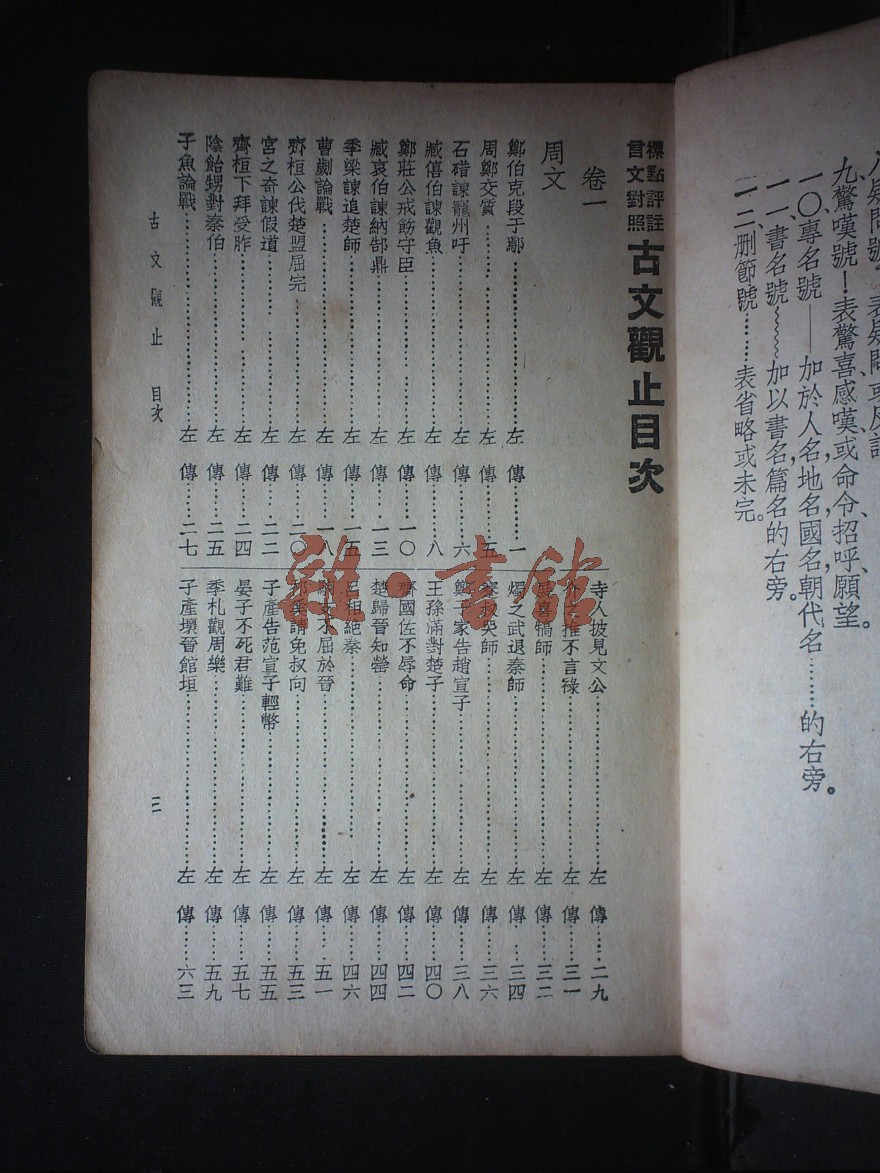 八、疑問號
九、驚嘆號！表驚喜、感嘆、或命令、招呼、願望。
一〇、專名號——加於人名、地名、國名、朝代名……的右旁。
一一、書名號﹏﹏加以書名、篇名的右旁。
一二、刪節號……表省略或未完。
標點評註
言文對照
古文觀止目次
卷一
周文
鄭伯克段于鄢……左傳……一
周鄭交質……左傳……五
石碏諫寵州吁……左傳……六
臧僖伯諫觀魚……左傳……八
鄭莊公戒飭守臣……左傳……一〇
臧哀伯諫納郜鼎……左傳……一三
季梁諫追楚師……左傳……一五
曹劌論戰……左傳……一八
齊桓公伐楚盟屈完……左傳……二〇
宮之奇諫假道……左傳……二二
齊桓下拜受胙……左傳……二四
陰飴甥對秦伯……左傳……二五
子魚論戰……左傳……二七
寺人披見文公……左傳……二九
推不言祿……左傳……三一
展喜犒師……左傳……三二
燭之武退秦師……左傳……三四
哭師……左傳……三六
鄭子家告趙宣子……左傳……三八
王孫滿對楚子……左傳……四〇
齊國佐不辱命……左傳……四二
楚歸晉知罃……左傳……四四
呂相絕秦……左傳……四六
駒支不屈於晉……左傳……五一
祁奚請免叔向……左傳……五三
子產告范宣子輕幣……左傳……五五
晏子不死君難……左傳……五七
季札觀周樂……左傳……五九
子產壞晉館垣……左傳……六三
古文觀止 目次
三
雜·書館